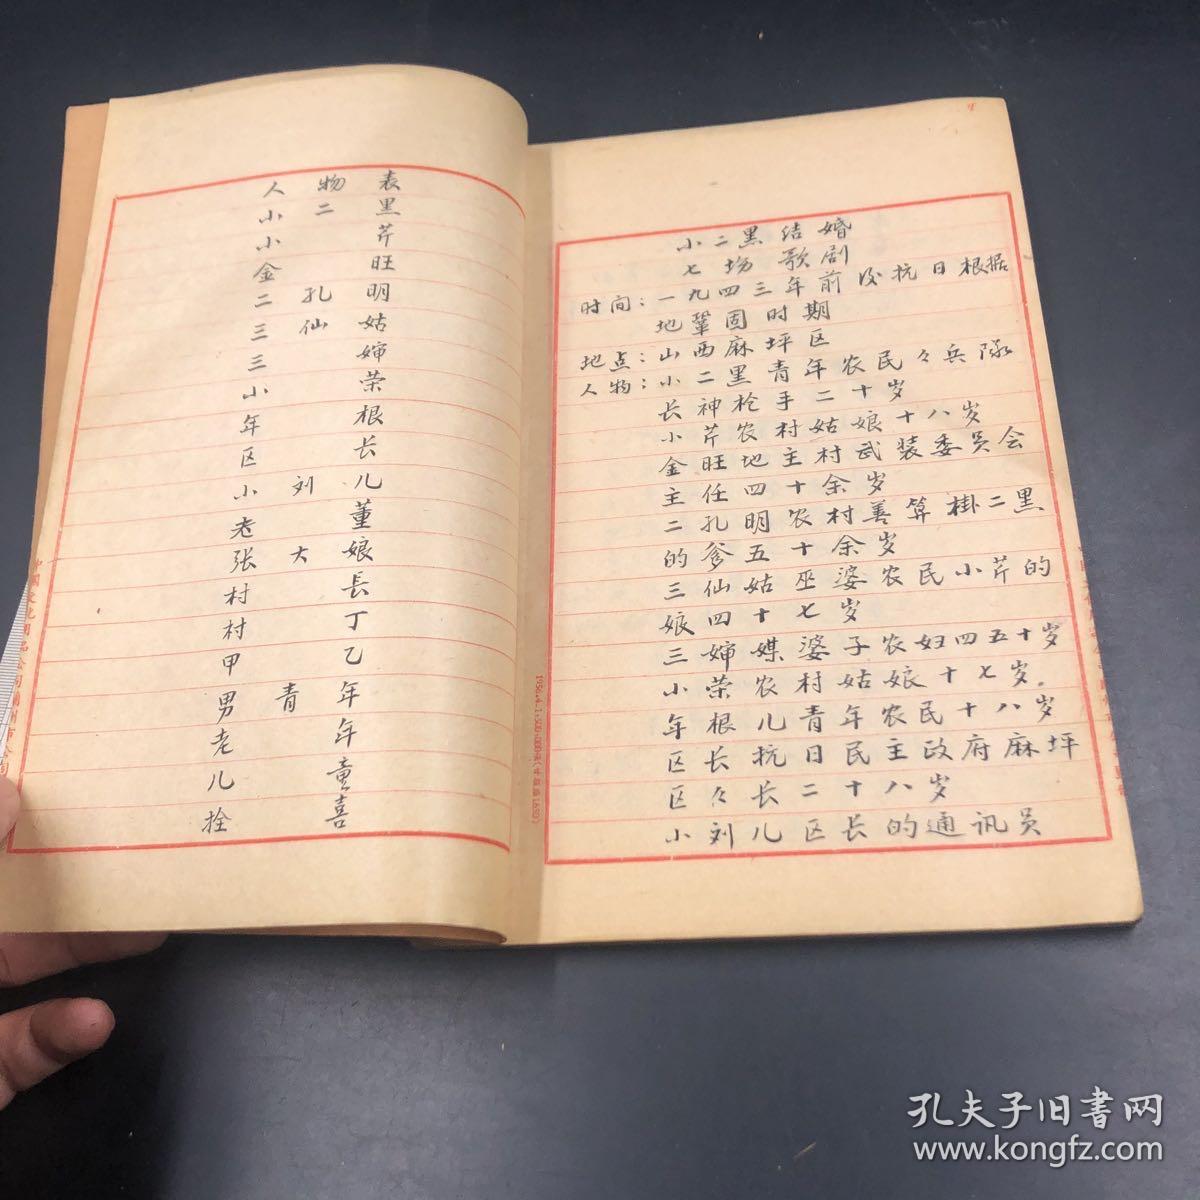 人物表
小二黑
小芹
金旺
二孔明
三仙姑
三婶
小荣
年根
区长
小刘儿
老董
张大娘
村长
村丁
甲乙
男青年
老年
儿童
拴喜
小二黑结婚
七场歌剧
时间:一九四三年前后抗日根据
地巩固时期
地点:山西麻坪区
人物:小二黑青年农民々兵队
长神枪手二十岁
小芹农村姑娘十八岁
金旺地主村武装委员会
主任四十余岁
二孔明农村善算掛二黑
的爹五十余岁
三仙姑巫婆农民小芹的
娘四十七岁
三婶媒婆子农妇四五十岁
小荣农村姑娘十七岁.
年根儿青年农民十八岁
区长抗日民主政府麻坪
区々长二十八岁
小刘儿区长的通讯员
孔夫子旧书网
www.kongfz.com